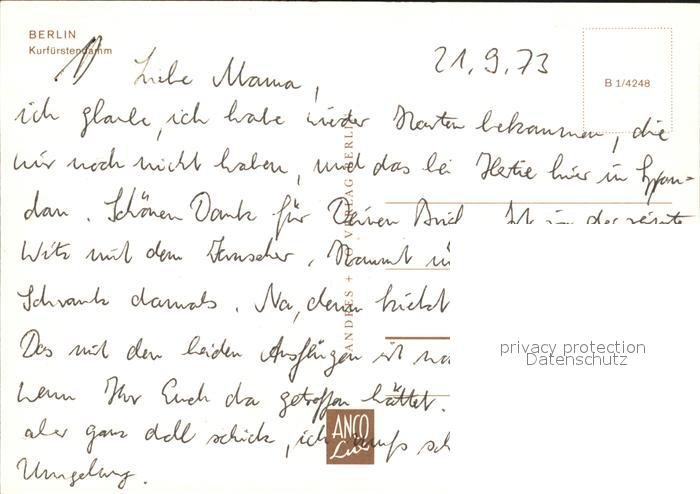 BERLIN
Kurfürstendamm
21.9.73
B 1/4248
Liebe Mama,
ich glaube, ich habe wieder Karten bekommen, die
wir noch nicht haben, und das bei Hertie hier in Span=
dau. Schönen Dank für Deinen
Witz mit dem
Schrank damals. Na, denn
Das mit den beiden Ausflügen ist
wenn Ihr Euch da getroffen hättet.
aber ganz doll schick, ich muß
Umgebung.
ANDRES + CO. VERLAG BERLIN
ANCO
Lux
privacy protection
Datenschutz